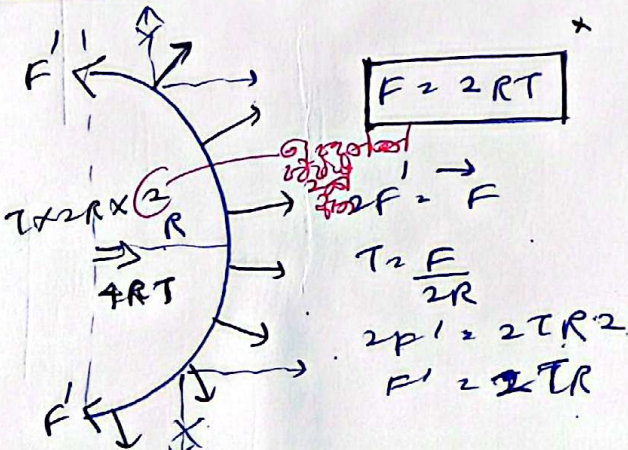 F'
F = 2RT
T×2R×2
R
4RT
2F' = F
T = F/2R
2F' = 2TR2
F' = 2TR
F'